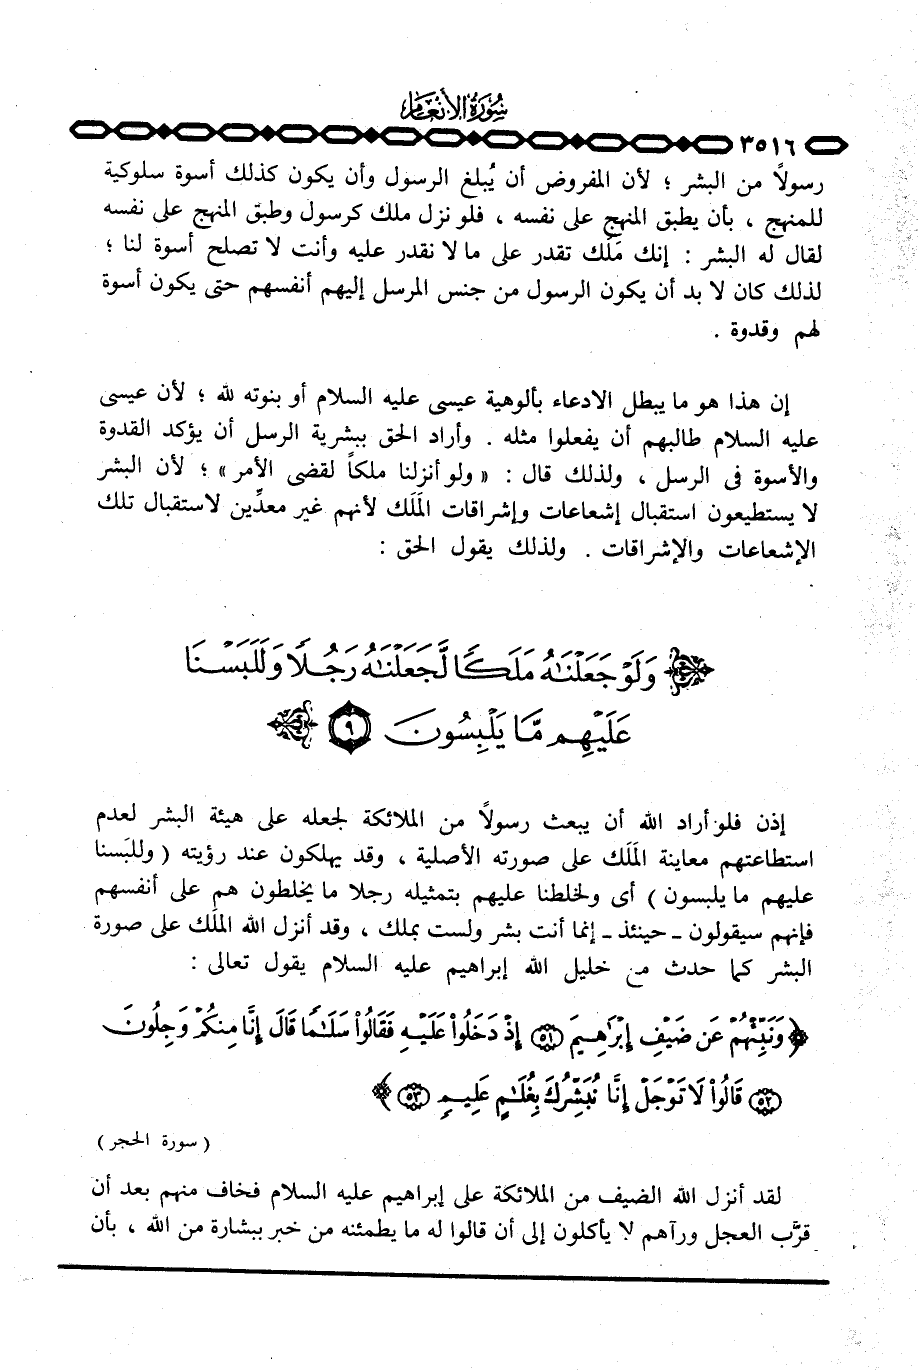 سورة الأنعام
٣٥١٦
رسولاً من البشر ؛ لأن المفروض أن يُبلغ الرسول وأن يكون كذلك أسوة سلوكية
للمنهج ، بأن يطبق المنهج على نفسه ، فلو نزل ملك كرسول وطبق المنهج على نفسه
لقال له البشر : إنك مَلَك تقدر على ما لا نقدر عليه وأنت لا تصلح أسوة لنا ؛
لذلك كان لا بد أن يكون الرسول من جنس المرسل إليهم أنفسهم حتى يكون أسوة
لهم وقدوة .
إن هذا هو ما يبطل الادعاء بألوهية عيسى عليه السلام أو بنوته لله ؛ لأن عيسى
عليه السلام طالبهم أن يفعلوا مثله . وأراد الحق ببشرية الرسل أن يؤكد القدوة
والأسوة فى الرسل ، ولذلك قال : « ولو أنزلنا ملكاً لقضى الأمر » ؛ لأن البشر
لا يستطيعون استقبال إشعاعات وإشراقات المَلَك لأنهم غير معدِّين لاستقبال تلك
الإشعاعات والإشراقات . ولذلك يقول الحق :
وَلَوْ جَعَلْنَٰهُ مَلَكًا لَّجَعَلْنَٰهُ رَجُلًا وَلَلَبَسْنَا
عَلَيْهِم مَّا يَلْبِسُونَ ٩
إذن فلو أراد الله أن يبعث رسولاً من الملائكة لجعله على هيئة البشر لعدم
استطاعتهم معاينة المَلَك على صورته الأصلية ، وقد يهلكون عند رؤيته ( وللبَسنا
عليهم ما يلبسون ) أى ولخلطنا عليهم بتمثيله رجلا ما يخلطون هم على أنفسهم
فإنهم سيقولون ـ حينئذ ـ إنما أنت بشر ولست بملك ، وقد أنزل الله الملَك على صورة
البشر كما حدث مع خليل الله إبراهيم عليه السلام يقول تعالى :
﴿ وَنَبِّئْهُمْ عَن ضَيْفِ إِبْرَٰهِيمَ ٥١ إِذْ دَخَلُوا۟ عَلَيْهِ فَقَالُوا۟ سَلَٰمًا قَالَ إِنَّا مِنكُمْ وَجِلُونَ
٥٢ قَالُوا۟ لَا تَوْجَلْ إِنَّا نُبَشِّرُكَ بِغُلَٰمٍ عَلِيمٍ ٥٣ ﴾
( سورة الحجر )
لقد أنزل الله الضيف من الملائكة على إبراهيم عليه السلام فخاف منهم بعد أن
قرَّب العجل ورآهم لا يأكلون إلى أن قالوا له ما يطمئنه من خبر ببشارة من الله ، بأن